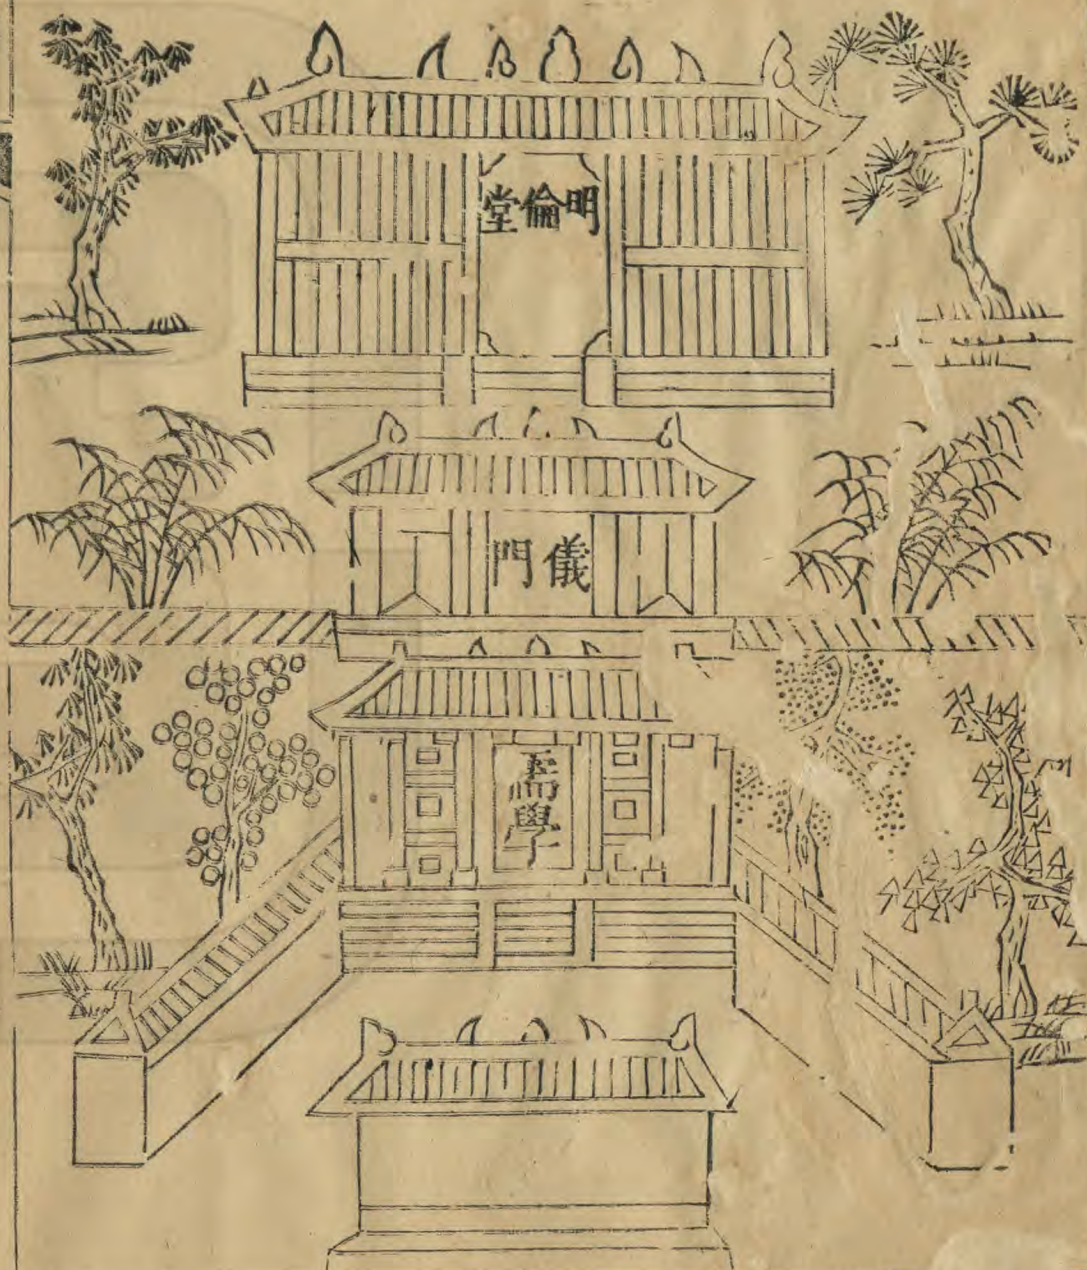 明倫堂
儀門
儒學